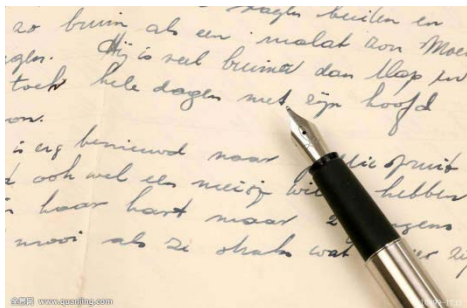 dagen buiten en
zo bruin als een mulat zoon Moe
gen. Hij is veel bruiner dan Klap en
toch hele dagen met zijn hoofd
zon.
is erg benieuwd naar spruit
ook wel een meisje hebben
haar hart maar jongens
mooi als ze straks wat zij
全景网 www.quanjing.com